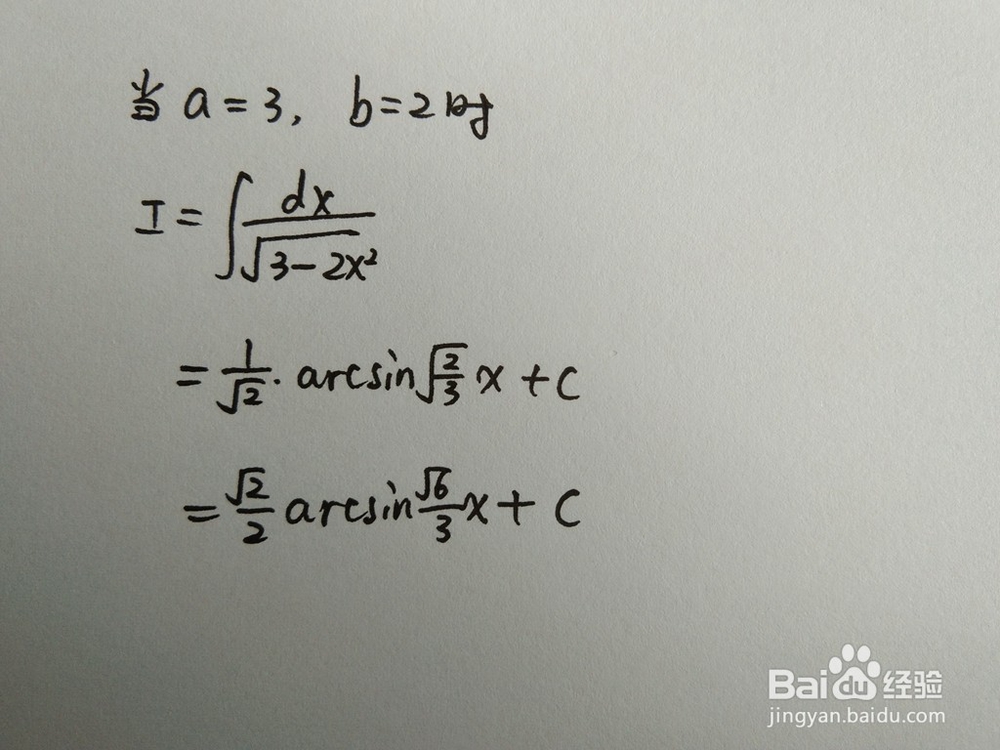 当 a = 3, b = 2 时
I = ∫ dx / √(3 − 2x²)
= 1/√2 · arcsin √(2/3) x + C
= √2/2 arcsin √6/3 x + C
Baidu 经验
jingyan.baidu.com